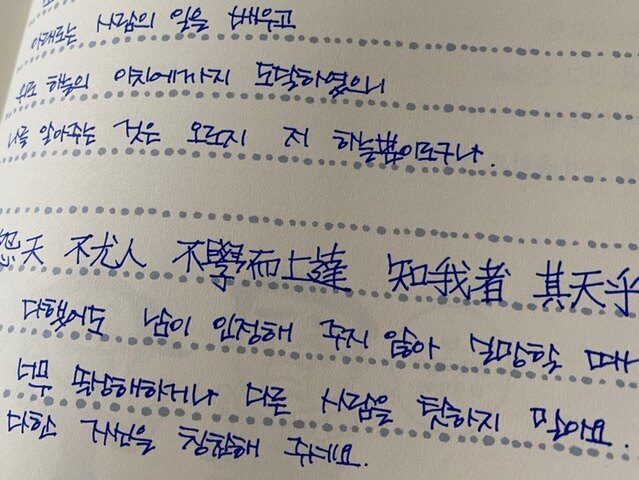 아래로는 사람의 일을 배우고
위로 하늘의 이치에까지 도달하였으니
나를 알아주는 것은 오로지 저 하늘뿐이로구나.
怨天 不尤人 不學而上達 知我者 其天乎
다했어도 남이 인정해 주지 않아 실망했을 때
너무 속상해하거나 다른 사람을 탓하지 말아요.
다한 자신을 칭찬해 주세요.